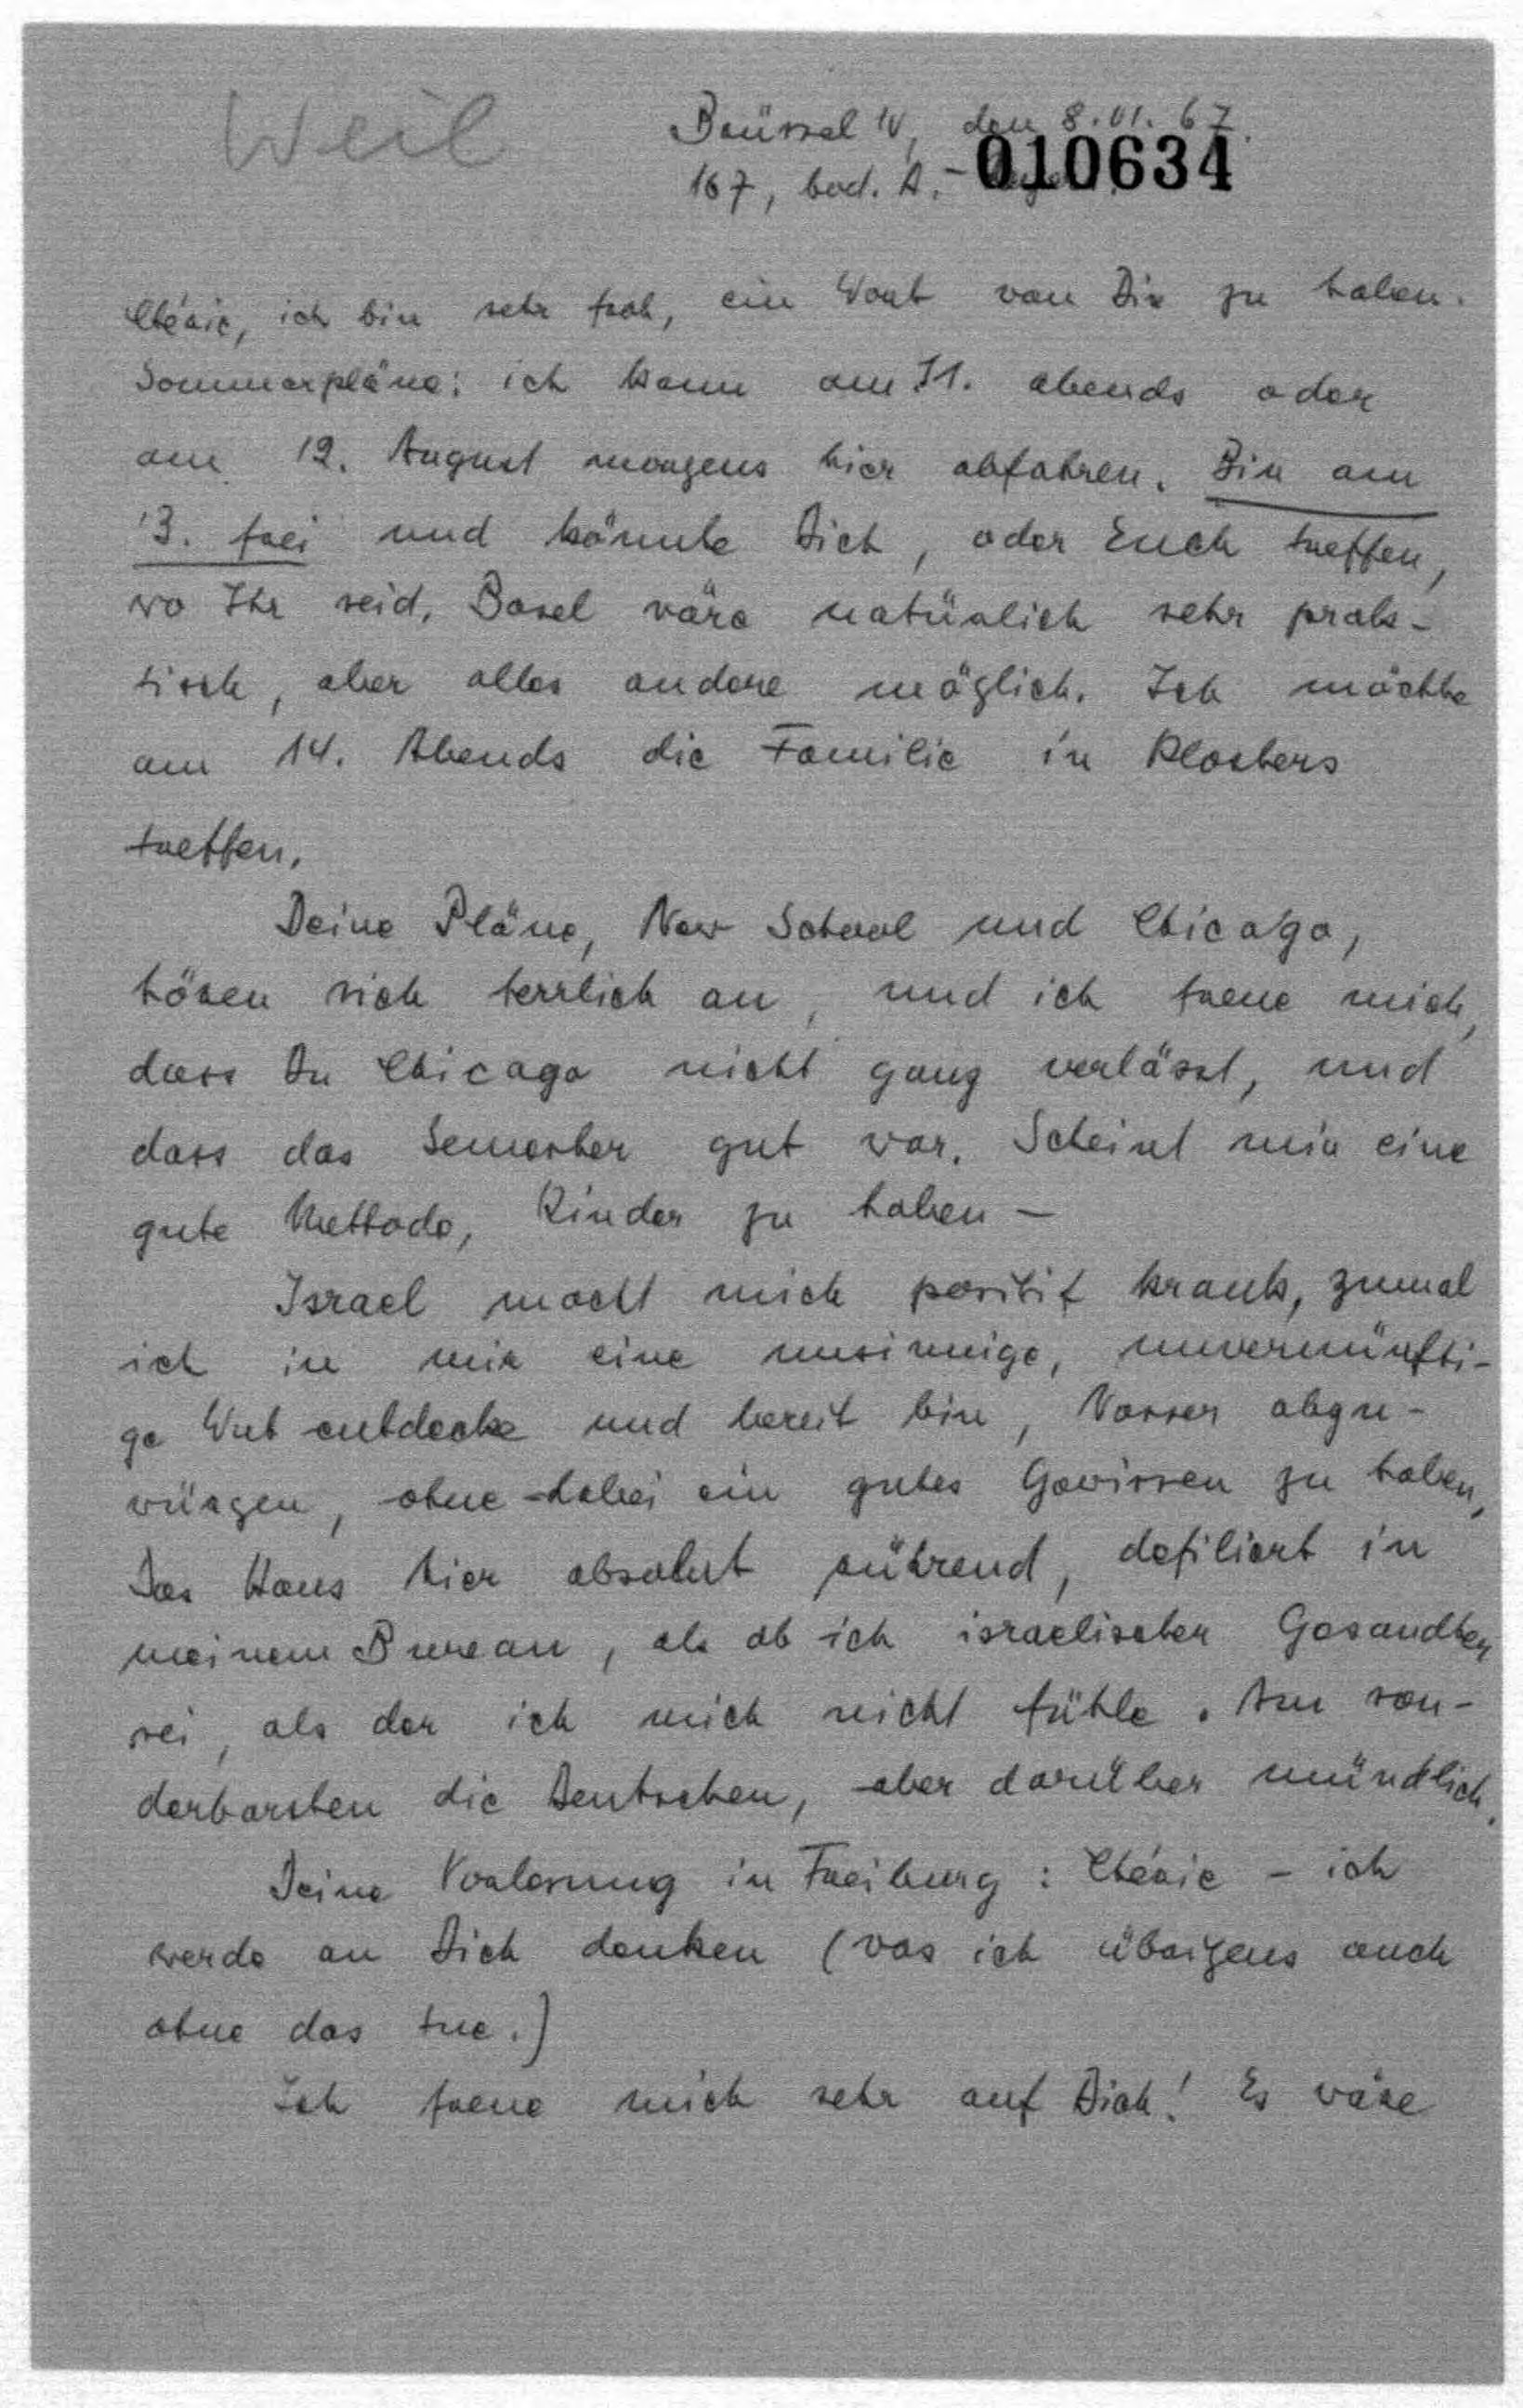 Weil
Brüssel IV, den 8.VI.67.
010634
167, bvd. A.
Chérie, ich bin sehr froh, ein Wort von Dir zu haben.
Sommerpläne: ich kann am 11. abends oder
am 12. August morgens hier abfahren. Bin am
13. frei und könnte Dich, oder Euch treffen,
wo Ihr seid. Basel wäre natürlich sehr prak-
tisch, aber alles andere möglich. Ich möchte
am 14. Abends die Familie in Klosters
treffen.
Deine Pläne, New School und Chicago,
hören sich herrlich an, und ich freue mich,
dass Du Chicago nicht ganz verlässt, und
dass das Semester gut war. Scheint mir eine
gute Methode, Kinder zu haben —
Israel macht mich positif krank, zumal
ich in mir eine unsinnige, unvernünfti-
ge Wut entdecke und bereit bin, Nasser abzu-
würgen, ohne dabei ein gutes Gewissen zu haben.
Das Haus hier absolut rührend, defiliert in
meinem Bureau, als ob ich israelischer Gesandter
sei, als der ich mich nicht fühle. Am son-
derbarsten die Deutschen, aber darüber mündlich.
Deine Vorlesung in Freiburg: Chérie - ich
werde an Dich denken (was ich übrigens auch
ohne das tue.)
Ich freue mich sehr auf Dich! Es wäre